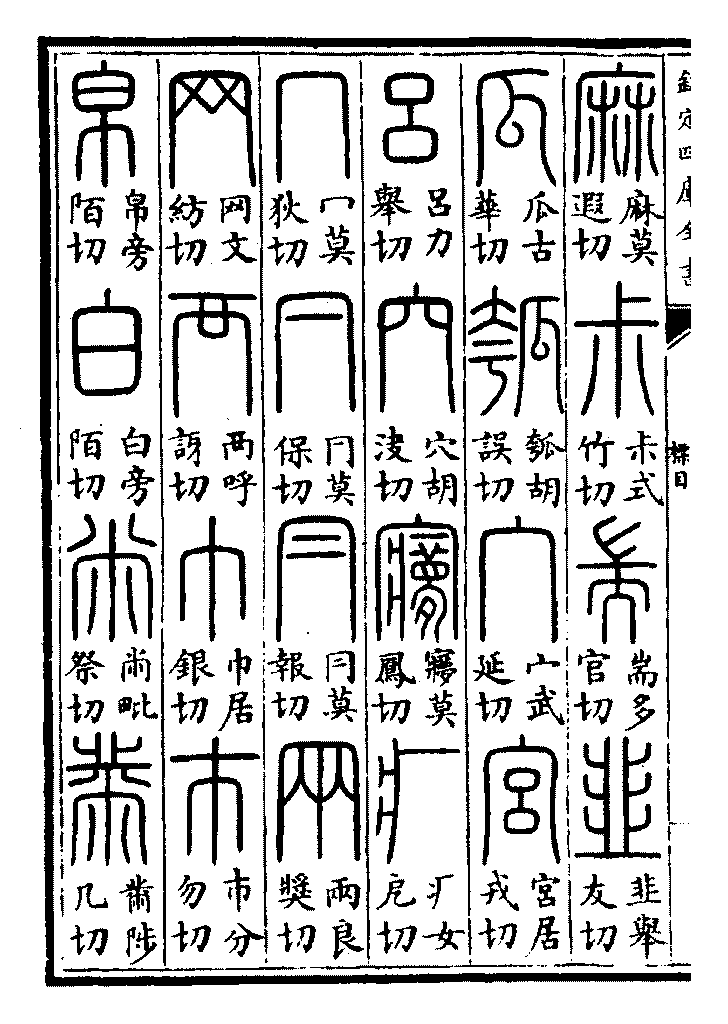 欽定四庫全書
標目
麻 麻莫遐切 尗 尗式竹切 耑 耑多官切 韭 韭舉友切
瓜 瓜古華切 瓠 瓠胡誤切 宀 宀武延切 宮 宮居戎切
呂 呂力舉切 穴 穴胡決切 㝱 㝱莫鳳切 疒 疒女戹切
冖 冖莫狄切 𠔼 𠔼莫保切 冃 冃莫報切 㒳 㒳良獎切
网 网文紡切 襾 襾呼訝切 巾 巾居銀切 巿 巿分勿切
帛 帛旁陌切 白 白旁陌切 㡀 㡀毗祭切 黹 黹陟几切